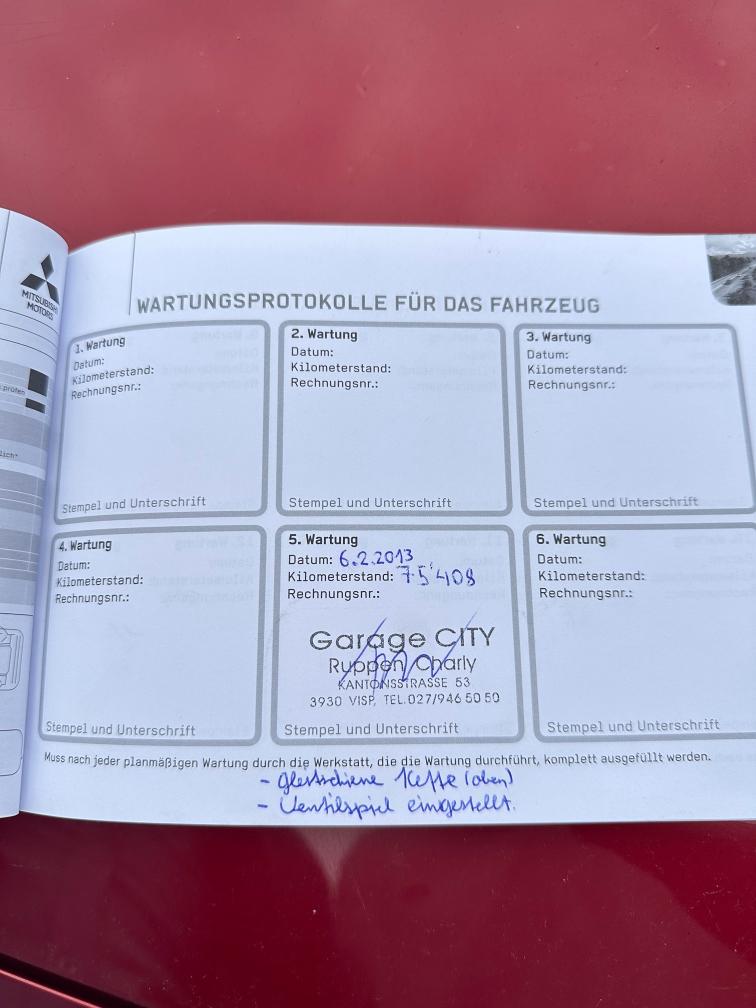 MITSUBISHI
MOTORS
prüfen
lich*
WARTUNGSPROTOKOLLE FÜR DAS FAHRZEUG
1. Wartung
Datum:
Kilometerstand:
Rechnungsnr.:
Stempel und Unterschrift
2. Wartung
Datum:
Kilometerstand:
Rechnungsnr.:
Stempel und Unterschrift
3. Wartung
Datum:
Kilometerstand:
Rechnungsnr.:
Stempel und Unterschrift
4. Wartung
Datum:
Kilometerstand:
Rechnungsnr.:
Stempel und Unterschrift
5. Wartung
Datum: 6.2.2013
Kilometerstand: 75'408
Rechnungsnr.:
Garage CITY
Ruppen Charly
KANTONSSTRASSE 53
3930 VISP, TEL.027/946 50 50
Stempel und Unterschrift
6. Wartung
Datum:
Kilometerstand:
Rechnungsnr.:
Stempel und Unterschrift
Muss nach jeder planmäßigen Wartung durch die Werkstatt, die die Wartung durchführt, komplett ausgefüllt werden.
- Kette (oben)
- Ventilspiel eingestellt.